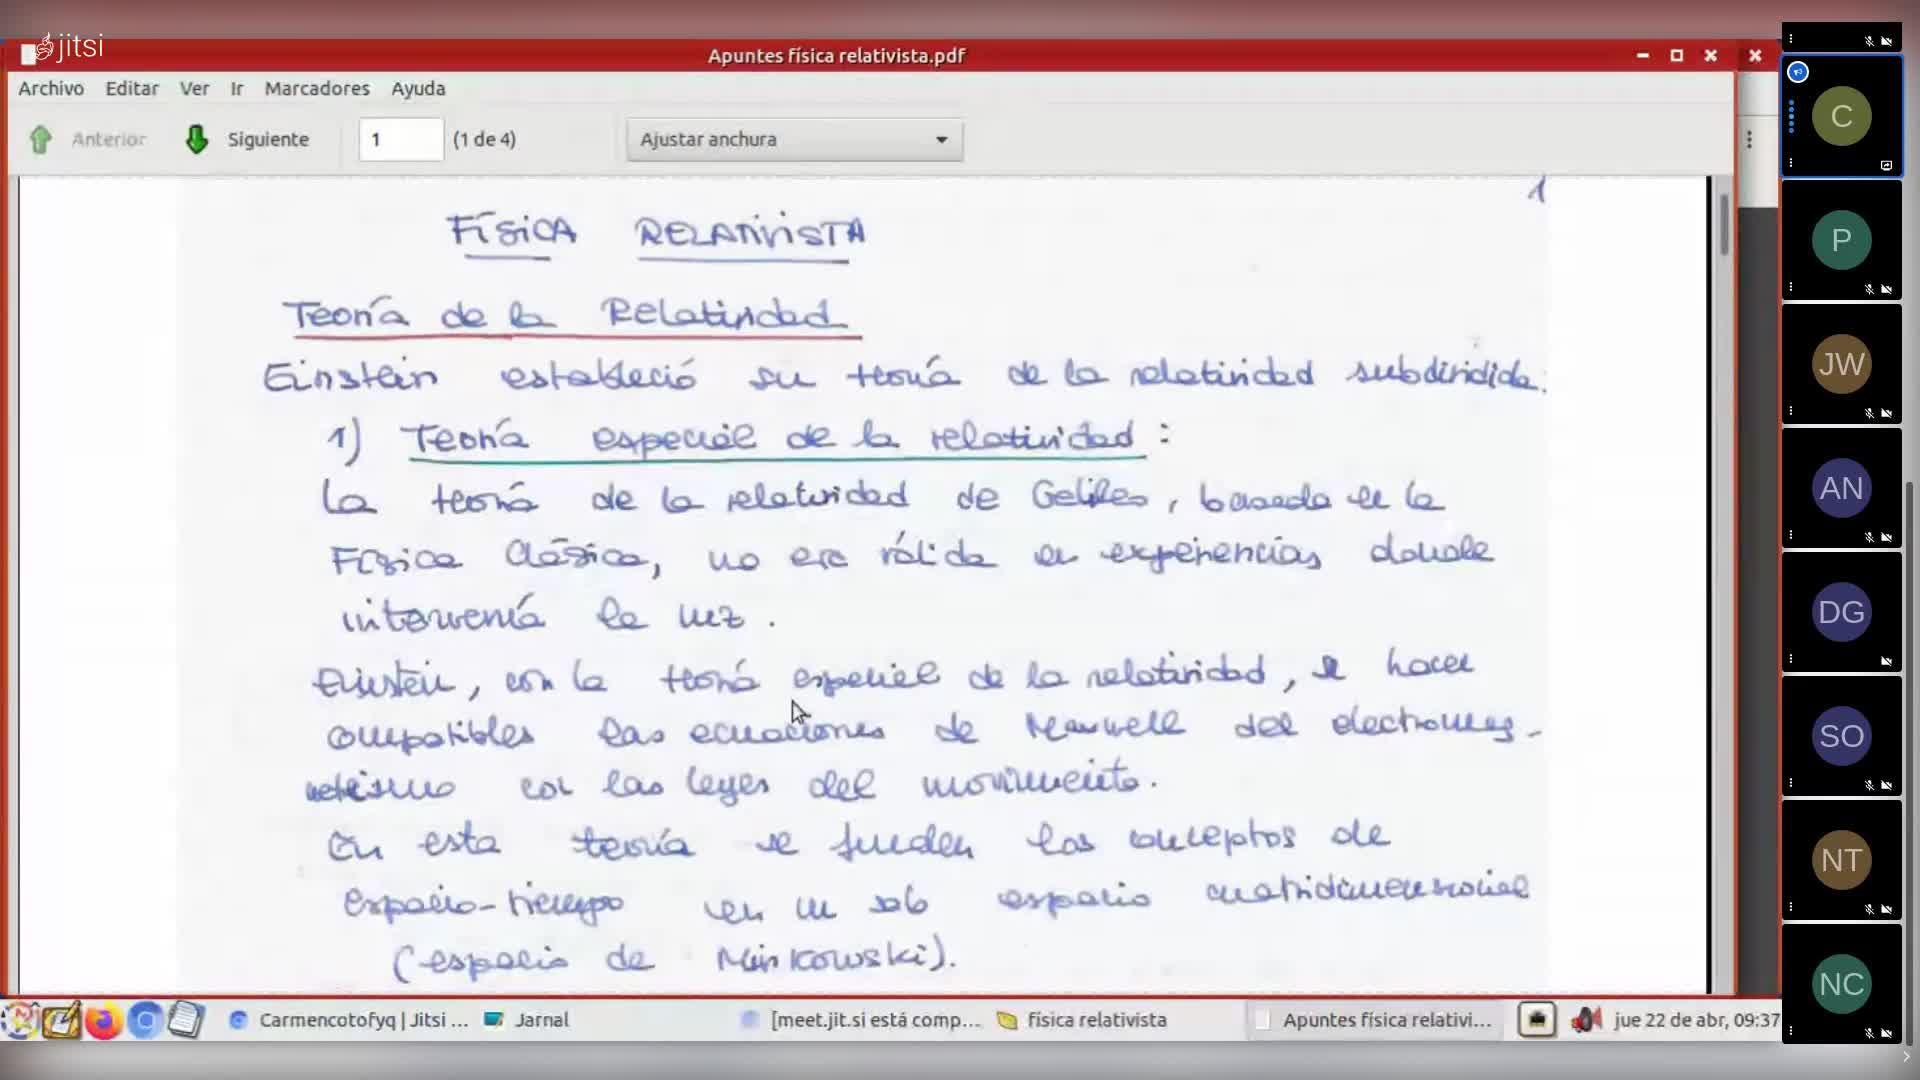 jitsi
Apuntes física relativista.pdf
Archivo Editar Ver Ir Marcadores Ayuda
Anterior Siguiente 1 (1 de 4) Ajustar anchura
1
FÍSICA RELATIVISTA
Teoría de la Relatividad
Einstein estableció su teoría de la relatividad subdividida:
1) Teoría especial de la relatividad :
La teoría de la relatividad de Galileo, basada en la
Física Clásica, no era válida en experiencias donde
intervenía la luz.
Einstein, con la teoría especial de la relatividad, se hacen
compatibles las ecuaciones de Maxwell del electromag-
netismo con las leyes del movimiento.
En esta teoría se funden los conceptos de
espacio-tiempo en un solo espacio cuatridimensional
(espacio de Minkowski).
Carmencotofyq | Jitsi ... Jarnal [meet.jit.si está comp... física relativista Apuntes física relativi... jue 22 de abr, 09:37
C
P
JW
AN
DG
SO
NT
NC